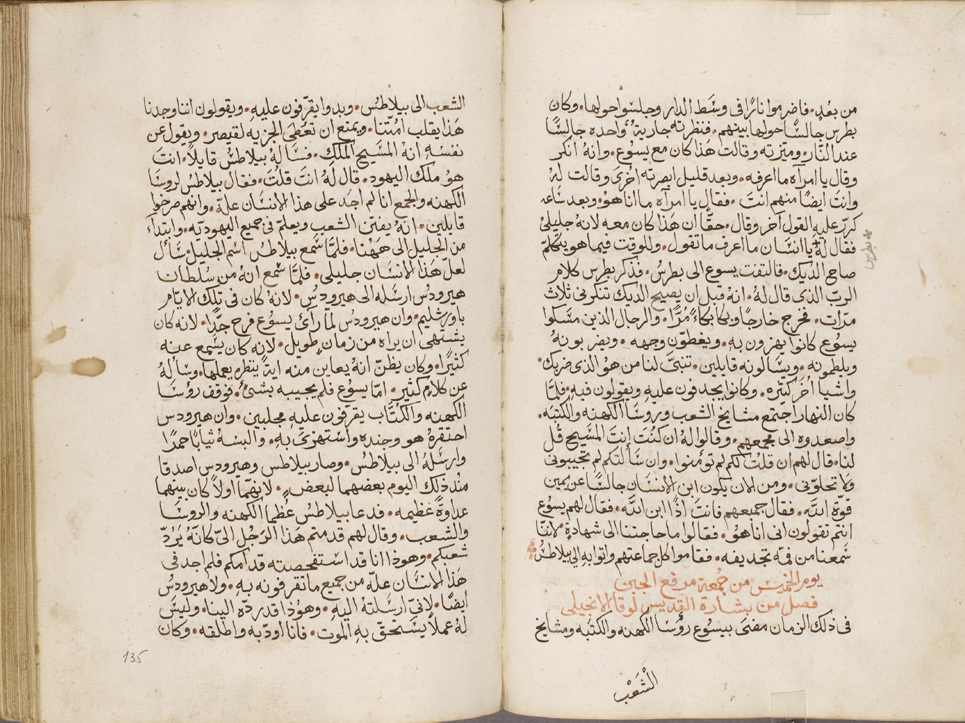 من بعُدٍ • فاضرموا نارًا في وسَط الدار وجلسوا حولها • وكان
بطرس جالسًا حولها بينهم • فنظرته جارية واحده جالسًا
عند النار • وميّزته وقالت هذا كان مع يسوع • وانهُ انكر
وقال يا امراه ما اعرفه • وبعد قليل ابصرته اخرى وقالت لهُ
وانت ايضًا منهم انت • فقال يا امراه ما انا هو • وبعد ساعه
كرّر عليهِ القول آخر وقال • حقًّا ان هذا كان معه لانهُ جليلي
فقال لهُ يا انسان ما اعرف ما تقول • وللوقت فيما هو يتكلّم
بطرس
صاح الديك • فالتفت يسوع الى بطرس • فذكر بطرس كلام
الربّ الذي قال لهُ • انهُ قبل ان يصيح الديك تنكرني ثلاث
مرّات • فخرج خارجًا وبكا بكاءً مُرًّا • والرجال الذين مسَكوا
يسوع كانوا يهزون بهِ • ويغطون وجهه • ويضربونهُ
ويلطمونه • ويسالونه قايلين • تنبّى لنا من هو الذي ضربك •
واشيا اُخَر كثيره • وكانوا يجدفون عليهِ ويقولون فيهِ • فلمّا
كان النهار اجتمع مشايخ الشعب وروسَا الكهنه والكتبه •
واصعدوه الى مجمعهم • وقالوا لهُ ان كنتَ انت المسَيح قُل
لنا • قال لهم ان قلت لكم لم تومنوا • وان سَالتكم لم تجيبوني
ولا تخلّوني • ومن الان يكون ابن الانسَان جالسًا عن يمين
قوّة اللّه • فقال جميعهم فانت اذًا ابن اللّه • فقال لهم يسوع
انتم تقولون اني انا هو • فقالوا ما حاجتنا الى شهادة لانّنا
سَمعنا من فمه تجديفه • فقاموا كل جماعتهم واتوا بهِ الى بيلاطسُ
يوم الخميس من جمعة مرفع الجبن
فصل من بشارة القديس لوقا الانجيلي
في ذلك الزمان مضى بيسوع روسَا الكهنه والكتبه ومشايخ
الشَعْب
الشعب الى بيلاطسُ • وبدوا يقرفون عليهِ • ويقولون اننا وجدنا
هَذا يقلب امّتنا • ويمنع ان تعُطى الجزيه لقيصر • ويقول عن
نفسَهِ انهُ المسَيح الملك • فسَالهُ بيلاطسُ قايلاً • انتَ
هوُ ملك اليهود • قال لهُ انت قلتَ • فقال بيلاطس لروسَا
الكهنه وللجمع انا لم اجد على هذا الانسَان علّه • وانهم صرخوا
قايلين • انهُ يفتن الشعب ويعلّم في جميع اليهوديّه • وابتدأ
من الجليل الى هَهنا • فلمّا سَمع بيلاطس اسم الجليل • سَأل
لعلّ هَذا الانسَان جليلي • فلمّا سَمع انهُ من سُلطان
هيرودس ارسَله الى هيرودس • لانهُ كان في تلك الايّام
باورشليم • وان هيرودس لما رأى يسوُع فرح جدًّا • لانهُ كان
يشتهي ان يراه من زمانٍ طويل • لانهُ كان يسمع عنه
كثيرًا • وكان يظنّ انهُ يعاين منه آية ينظره يعملها • وسالهُ
عن كلامٍ كثير • امّا يسوُع فلم يجيبه بشئٍ • فوقف روسَا
الكهنه والكتّاب يقرفون عليهِ مجلبين • وان هيرودس
احتقرهُ هو وجنده واستهزىَ بهِ • والبسَهُ ثيابًا حمرًا
وارسَلهُ الى بيلاطس • وصار بيلاطس وهيرودس اصدقا
منذ ذلك اليوم بعضهما لبعض • لانّهما اولاً كان بينهما
عداوةً عظيمه • فدعا بيلاطسُ عُظما الكهنه والروسَا
والشعب • وقال لهم قدمتم هذا الرَجُل اليّ كانّهُ يَردّ
شعبكم • وهوذا انا قد استفحصته قدامكم فلم اجد في
هَذا الانسَان علّه من جميع ما تقرفونه بهِ • ولا هيرودسُ
ايضًا • لانّي ارسَلتهُ اليهِ • وهوُذا قد ردّه الينا • وليسَ
لهُ عملاً يسَتحقّ بهِ الموت • فانا اودّبه واطلقه • وكان
135